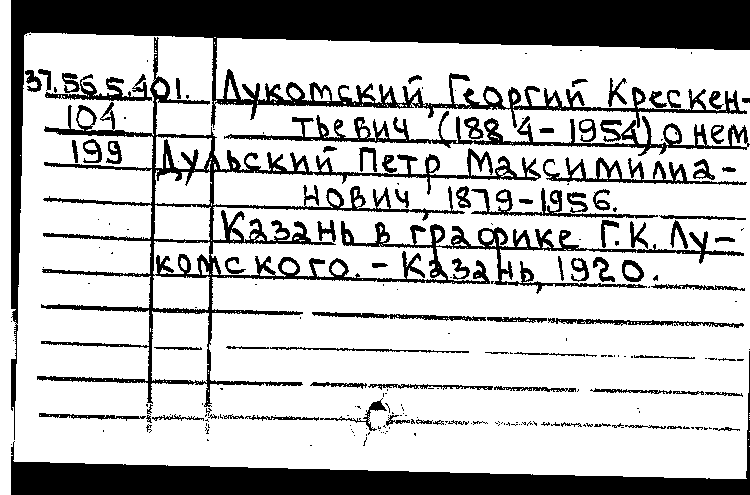 37.56.5.401. Лукомский, Георгий Крескен-
104 тьевич (1884-1954), о нем
199 Дульский, Петр Максимилиа-
нович, 1879-1956.
Казань в графике Г.К. Лу-
комского. - Казань, 1920.